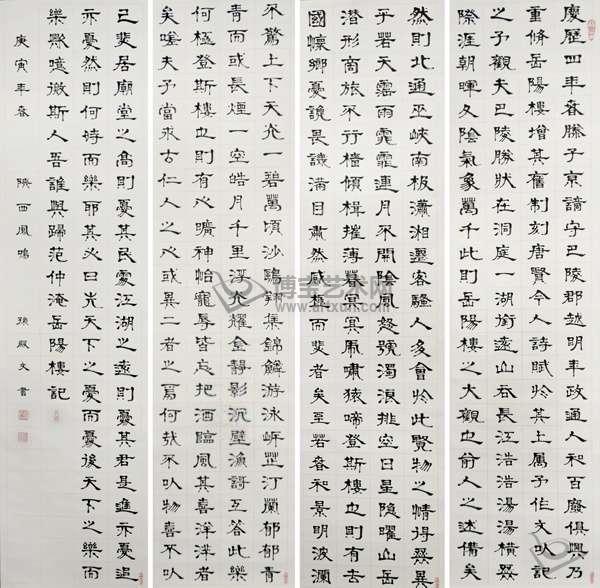 慶歷四年春滕子京謫守巴陵郡越明年政通人和百廢俱興乃
重脩岳陽樓增其舊制刻唐賢今人詩賦於其上屬予作文以記
之予觀夫巴陵勝狀在洞庭一湖銜遠山吞長江浩浩湯湯橫無
際涯朝暉夕陰氣象萬千此則岳陽樓之大觀也前人之述備矣
然則北通巫峽南極瀟湘遷客騷人多會於此覽物之情得無異
乎若夫霪雨霏霏連月不開陰風怒號濁浪排空日星隱曜山岳
潛形商旅不行檣傾楫摧薄暮冥冥虎嘯猿啼登斯樓也則有去
國懷鄉憂讒畏譏滿目肅然感極而悲者矣至若春和景明波瀾
不驚上下天光一碧萬頃沙鷗翔集錦鱗游泳岸芷汀蘭郁郁青
青而或長煙一空皓月千里浮光耀金靜影沉璧漁謌互答此樂
何極登斯樓也則有心曠神怡寵辱皆忘把酒臨風其喜洋洋者
矣嗟夫予嘗求古仁人之心或異二者之為何哉不以物喜不以
己悲居廟堂之高則憂其民處江湖之遠則憂其君是進亦憂退
亦憂然則何時而樂耶其必曰先天下之憂而憂後天下之樂而
樂歟噫微斯人吾誰與歸范仲淹岳陽樓記
庚寅年春 陝西鳳鳴 孫殿文書
博宝艺术网